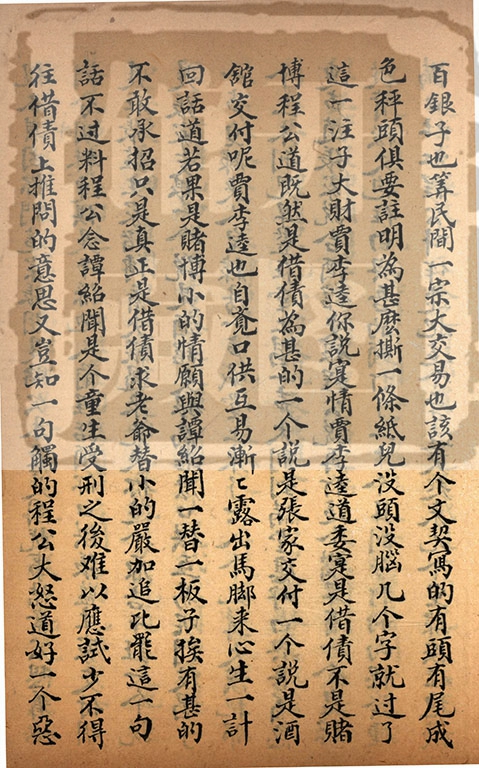 百銀子也算民間一宗大交易也該有个文契寫的有頭有尾成
色秤頭俱要註明為甚麽撕一條紙兒没頭没腦几个字就过了
這一注子大財賈李逵你說寔情賈李逵道委寔是借債不是賭
博程公道既然是借債為甚的一个說是張家交付一个說是酒
舘交付呢賈李逵也自覺口供互易漸〻露出馬脚来心生一計
回話道若果是賭博小的情願與譚紹聞一替一板子挨有甚的
不敢承招只是真正是借債求老爺替小的嚴加追比罷這一句
話不过料程公念譚紹聞是个童生受刑之後难以應試少不得
往借債上推問的意思又豈知一句觸的程公大怒道好一个惡